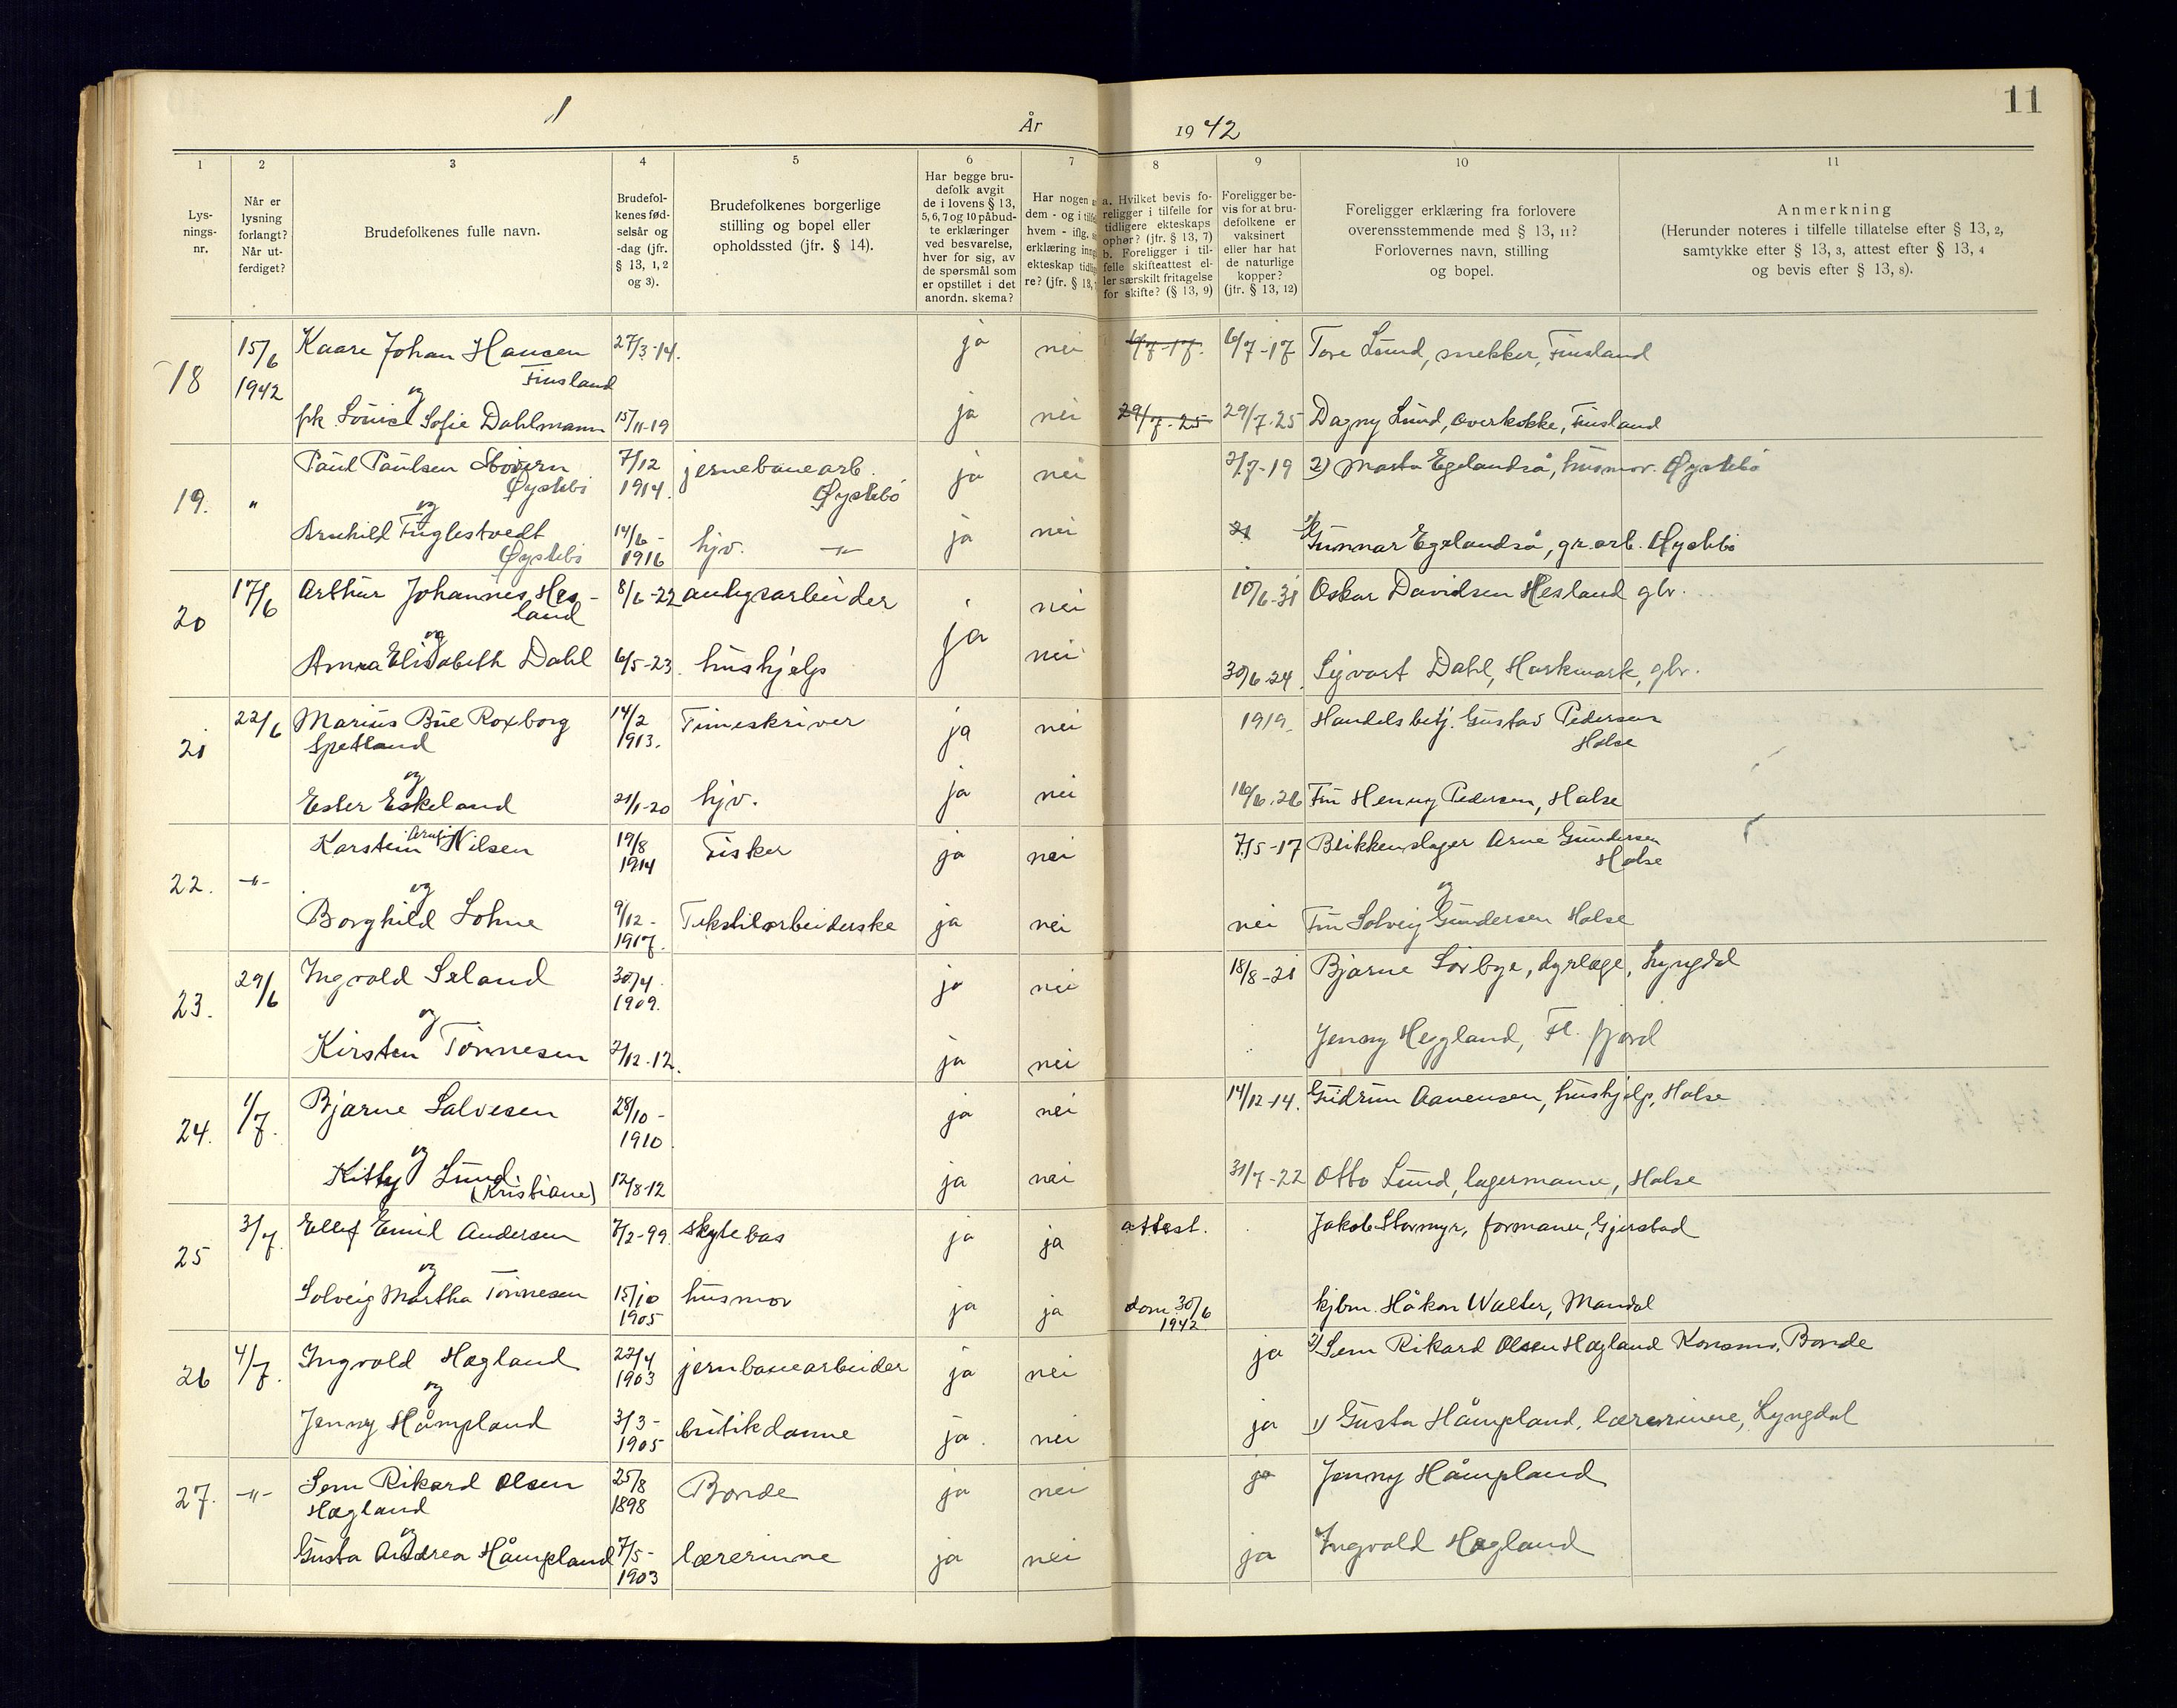 11
År 1942
1
2
3
4
5
6
7
8
9
10
11
Lys-
nings-
nr.
Når er
lysning
forlangt?
Når ut-
ferdiget?
Brudefolkenes fulle navn.
Brudefol-
kenes fød-
selsår og
-dag (jfr.
§ 13, 1, 2
og 3).
Brudefolkenes borgerlige
stilling og bopel eller
opholdssted (jfr. § 14).
Har begge bru-
defolk avgit
de i lovens § 13,
5, 6, 7 og 10 påbud-
te erklæringer
ved besvarelse,
hver for sig, av
de spørsmål som
er opstillet i det
anordn. skema?
Har nogen
dem - og i
hvem - iflg.
erklæring
ekteskap
re? (jfr. § 13,
a. Hvilket bevis fo-
religger i tilfelle for
tidligere ekteskaps
ophør? (jfr. § 13, 7)
b. Foreligger i til-
felle skifteattest el-
ler særskilt fritagelse
for skifte? (§ 13, 9)
Foreligger be-
vis for at bru-
defolkene er
vaksinert
eller har hat
de naturlige
kopper?
(jfr. § 13, 12)
Foreligger erklæring fra forlovere
overensstemmende med § 13, 11?
Forlovernes navn, stilling
og bopel.
Anmerkning
(Herunder noteres i tilfelle tillatelse efter § 13, 2,
samtykke efter § 13, 3, attest efter § 13, 4
og bevis efter § 13, 8).
18 15/6 Kaare Johan Hansen 27/3-14. ja nei 6/7-17. 6/7-17 Tore Lund, snekker, Finsland
1942 Finsland
og
frk Louise Sofie Dahlmann 15/11-19 ja nei 29/7-25 29/7-25 Dagny Lund, overkokke, Finsland
19. " Paul Paulsen 7/12 jernebanearb. ja nei 2/7-19 2) Marta Egelandså, husmor. Øyslebø
Øyslebø 1914. Øyslebø
og
Arnhild Fuglestvedt 14/6- hjv. -"- ja nei 21 1) Gunnar Egelandså, gr.arb. Øyslebø
Øyslebø 1916
20 17/6 Arthur Johannes Hes- 8/6-22 anlegsarbeider ja nei 10/6-31 Oskar Davidsen Hesland gbr.
land
og
Anna Elisabeth Dahl 6/5-23. hushjelp nei 30/6-24. Sigvart Dahl, Harkmark, gbr.
21 22/6 Marius Bue Roxborg 14/2 Timeskriver ja nei 1919. Handelsbetj. Gustav Pedersen
Spetland 1913. Halse
og
Ester Eskeland 21/1-20 hjv. ja nei 16/6.26 Fru Henny Pedersen, Halse
22. -"- Karstein Arnfin Nilsen 19/8 Fisker ja nei 7/5-17 Blikkenslager Arne Gundersen
1914 Halse
og og
Borghild Lohne 9/12- Tekstilarbeiderske ja nei nei Fru Solveig Gundersen Halse
1917.
23. 29/6 Ingvald Seland 30/4. ja nei 18/8-21 Bjarne Sørbye, dyrlege, Lyngdal
1909.
og
Kirsten Tønnesen 2/12-12. ja nei Jenny Hegland, Fl. fjord
24. 1/7. Bjarne Salvesen 28/10- ja nei 14/12-14. Gudrun Aanensen, hushjelp, Halse
1910.
og
Kitty Lund 12/8-12 ja nei 31/7-22 Otto Lund, lagermann, Halse
(Kristiane)
25 3/7. Ellef Emil Andersen 7/2-99. skytebas ja ja attest. Jakob Stormyr, formann, Gjerstad
og
Solveig Martha Tønnesen 15/10 husmor ja ja dom 30/6 kjbm. Håkon Walter, Mandal
1905 1942.
26 4/7. Ingvald Hægland 22/4 jernbanearbeider ja nei ja 2) Sem Rikard Olsen Hægland Konsmo, Bonde
1903
og
Jenny Håmpland 3/3- butikdame ja. nei ja 1) Gusta Håmpland, lærerinne, Lyngdal
1905
27. -"- Sem Rikard Olsen 25/8 Bonde ja nei ja Jenny Håmpland
Hægland 1898
og
Gusta Andrea Håmpland 7/5- lærerinne ja nei ja Ingvald Hægland
1903